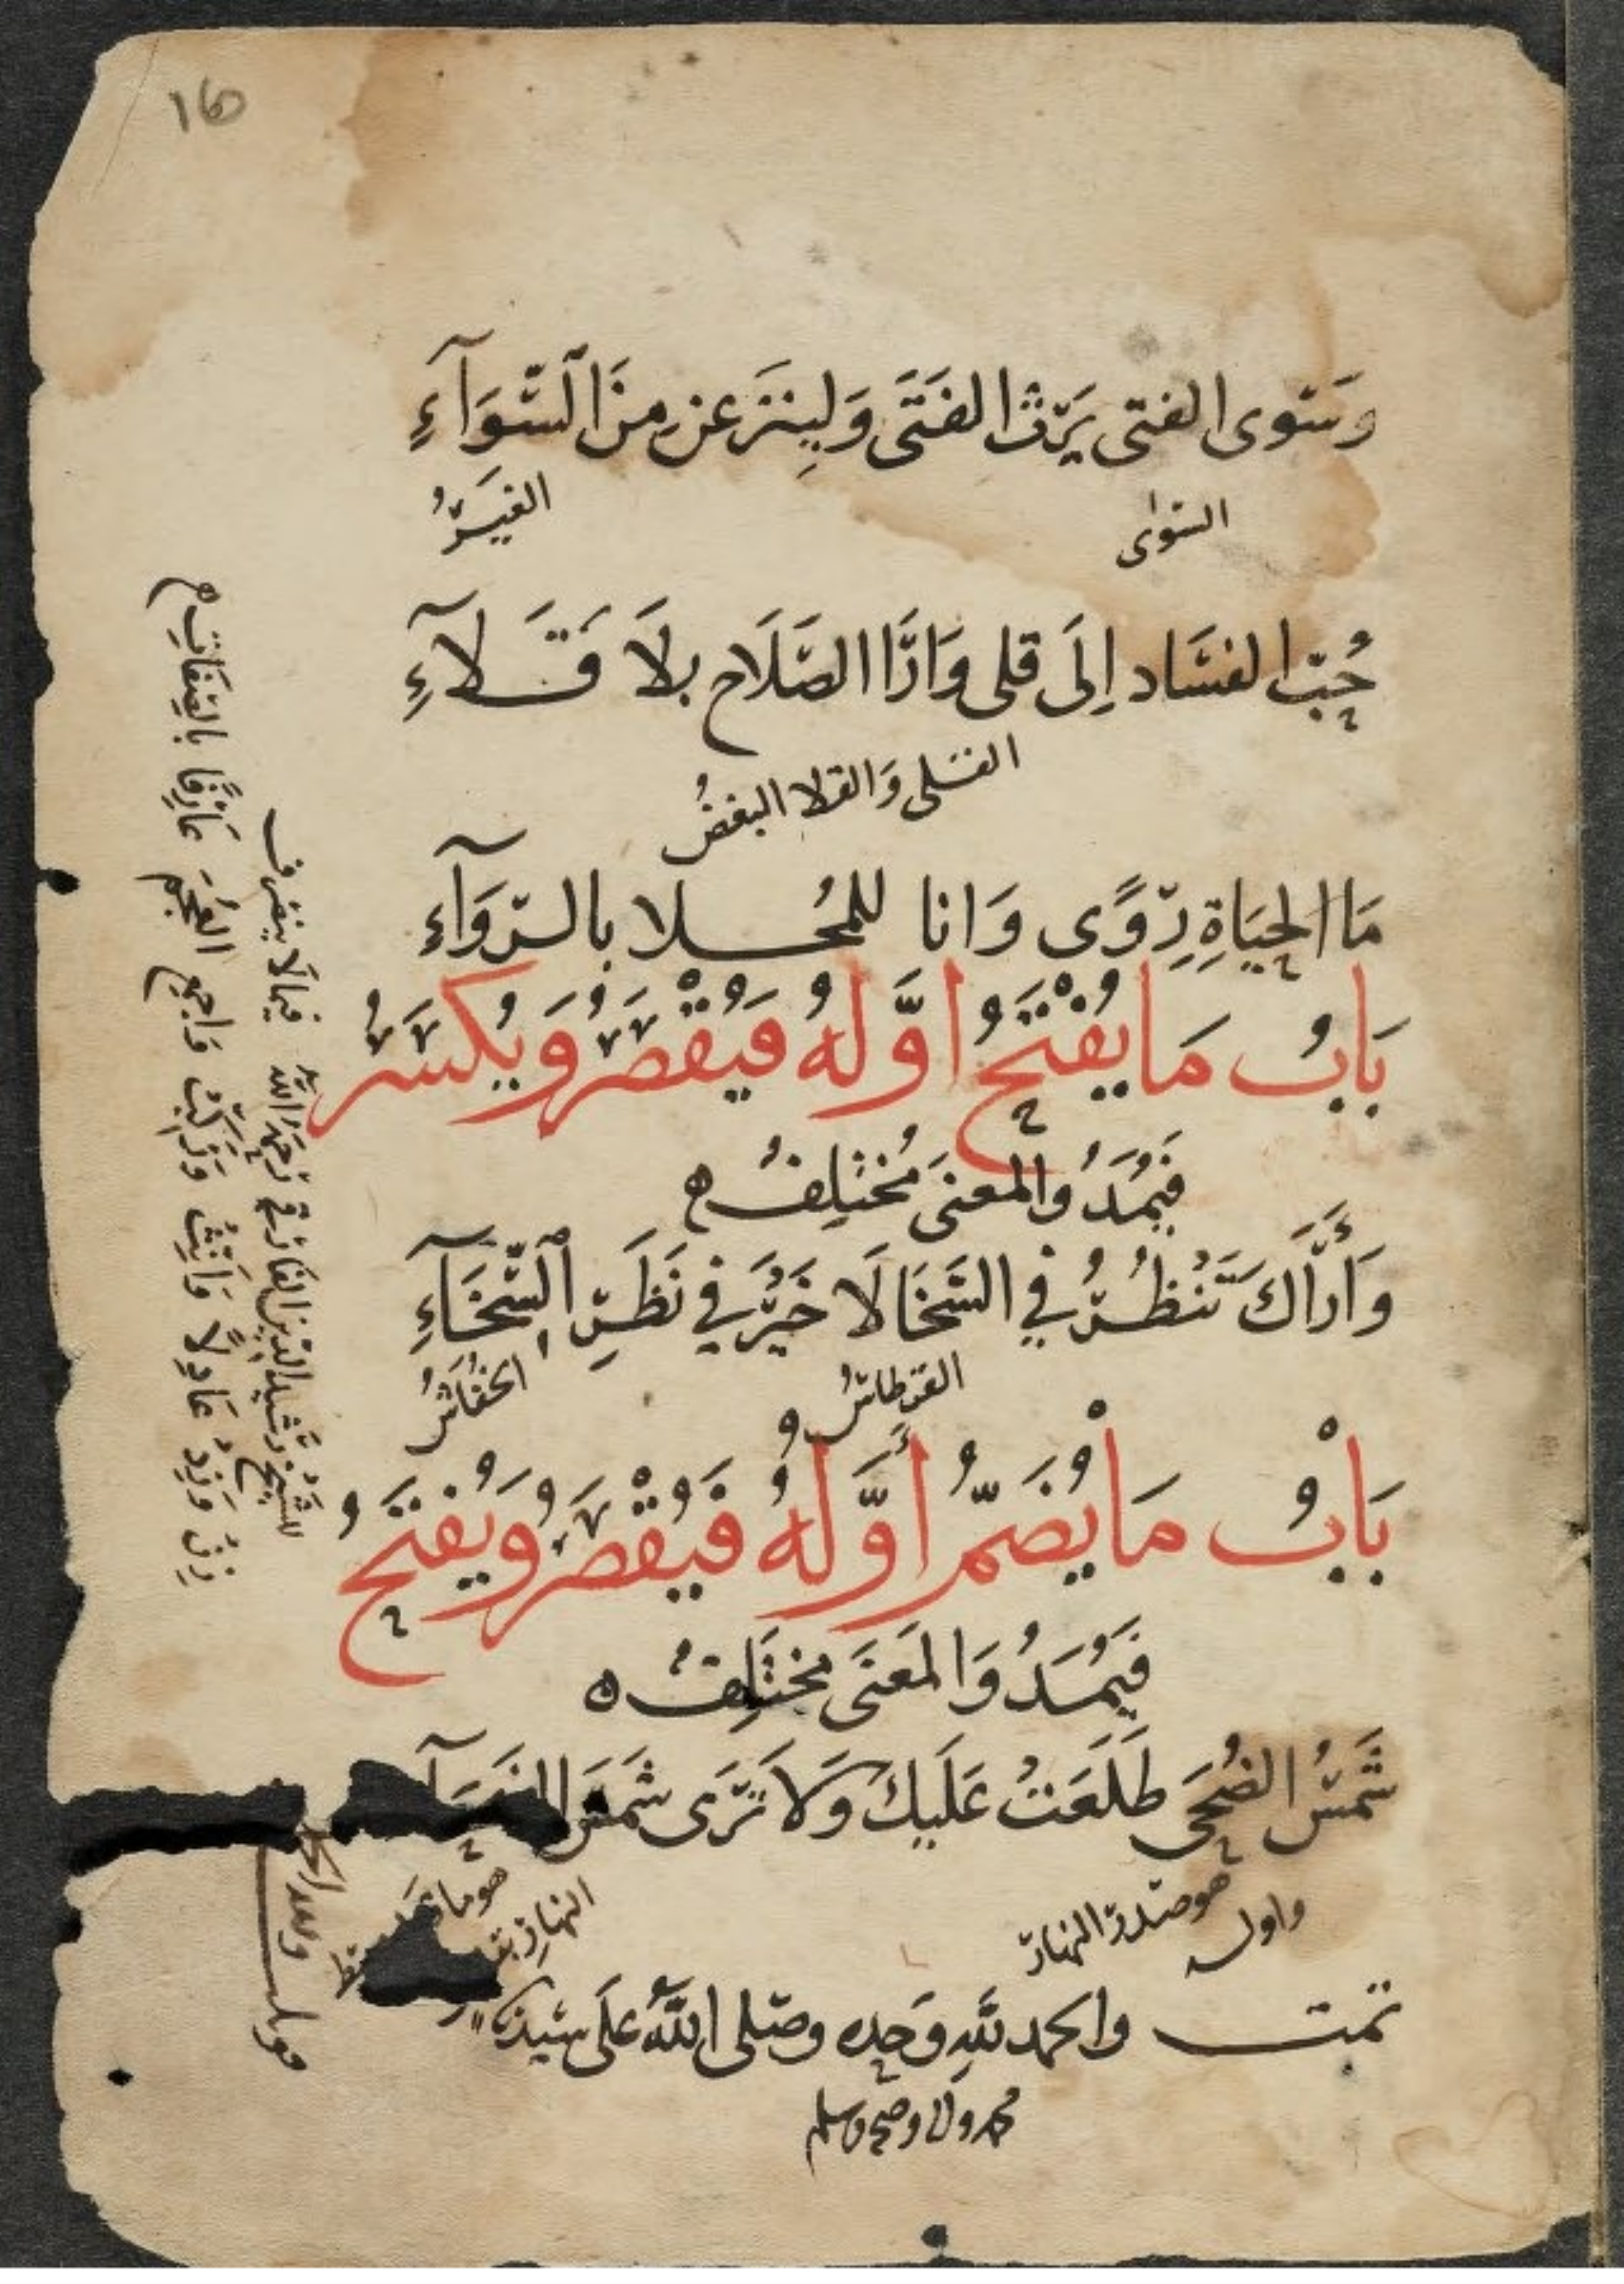 ١٥
وَسِوى الفتى يَرِثُ الفَتَى وَلِيُنْزَعَنْ مِنَ السَّوَآءِ
السوى الغَيرُ
حُبُّ الفسَاد إِلَى قلى وَارَا الصَّلَاح بلَا قَلَآءِ
القلى وَالقلا البغضُ
مَا الحيَاةِ رِوًى وَانا للمُحلا بالرَّوَآءِ
بَابُ مَا يُفْتَحُ اوَّلهُ فَيُقْصَرُ وَيُكْسَرُ
فَيُمَدُّ والمعنَى مُخْتَلِفُ ه
وَأَرَاكَ تَنْظُرُ في السَّخَا لَا خَيْرَ في نَظَرِ السِّخَآءِ
القرطاسُ الخُفاشُ
بَابُ مَا يُضَمُّ أوَّلهُ فَيُقْصَرُ وَيُفتَحُ
فَيُمَدُّ وَالمَعنَى مختَلِفُ ه
شَمْسُ الضُحَى طَلَعَتْ عَلَيكَ وَلَا تَرَى شَمْسَ
واول هو صَدرُ النهار
تمت والحمد لله وَحده وصَلى اللهُ علَى سَيدنا
محمد واله وصحبه وسلم
للشَّيخ رَشيد الدّين الفَارقي رَحمَه الله فيمَا لَا ينصَرف
زِنْ وَزِد عَادِلًا وَانِّثْ وَرَكِّبْ وَاجمع العُجمَ عَارِفًا بالصِّفَات